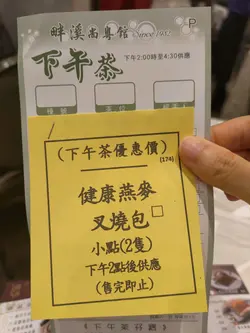 P
畔溪尚粵館 Since 1982
下午茶 下午2:00時至4:30供應
(下午茶優惠價)
(174)
健康燕麥
叉燒包□
小點(2隻)
下午2點後供應
(售完即止)